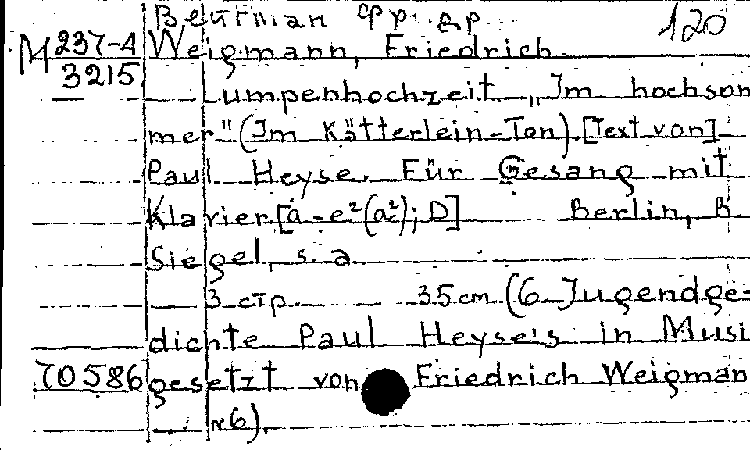 120
M 237-4 Weigmann, Friedrich
3215
Lumpenhochzeit „Im hochsom
mer" (Im Kätterlein-Ton). [Text von]
Paul Heyse. Für Gesang mit
Klavier. [a - e² (a²); D] Berlin, B
Siegel, s. a.
3 стр. 35 cm (6 Jugendge-
dichte Paul Heyse's in Musi
70586 gesetzt von Friedrich Weigman
№6).